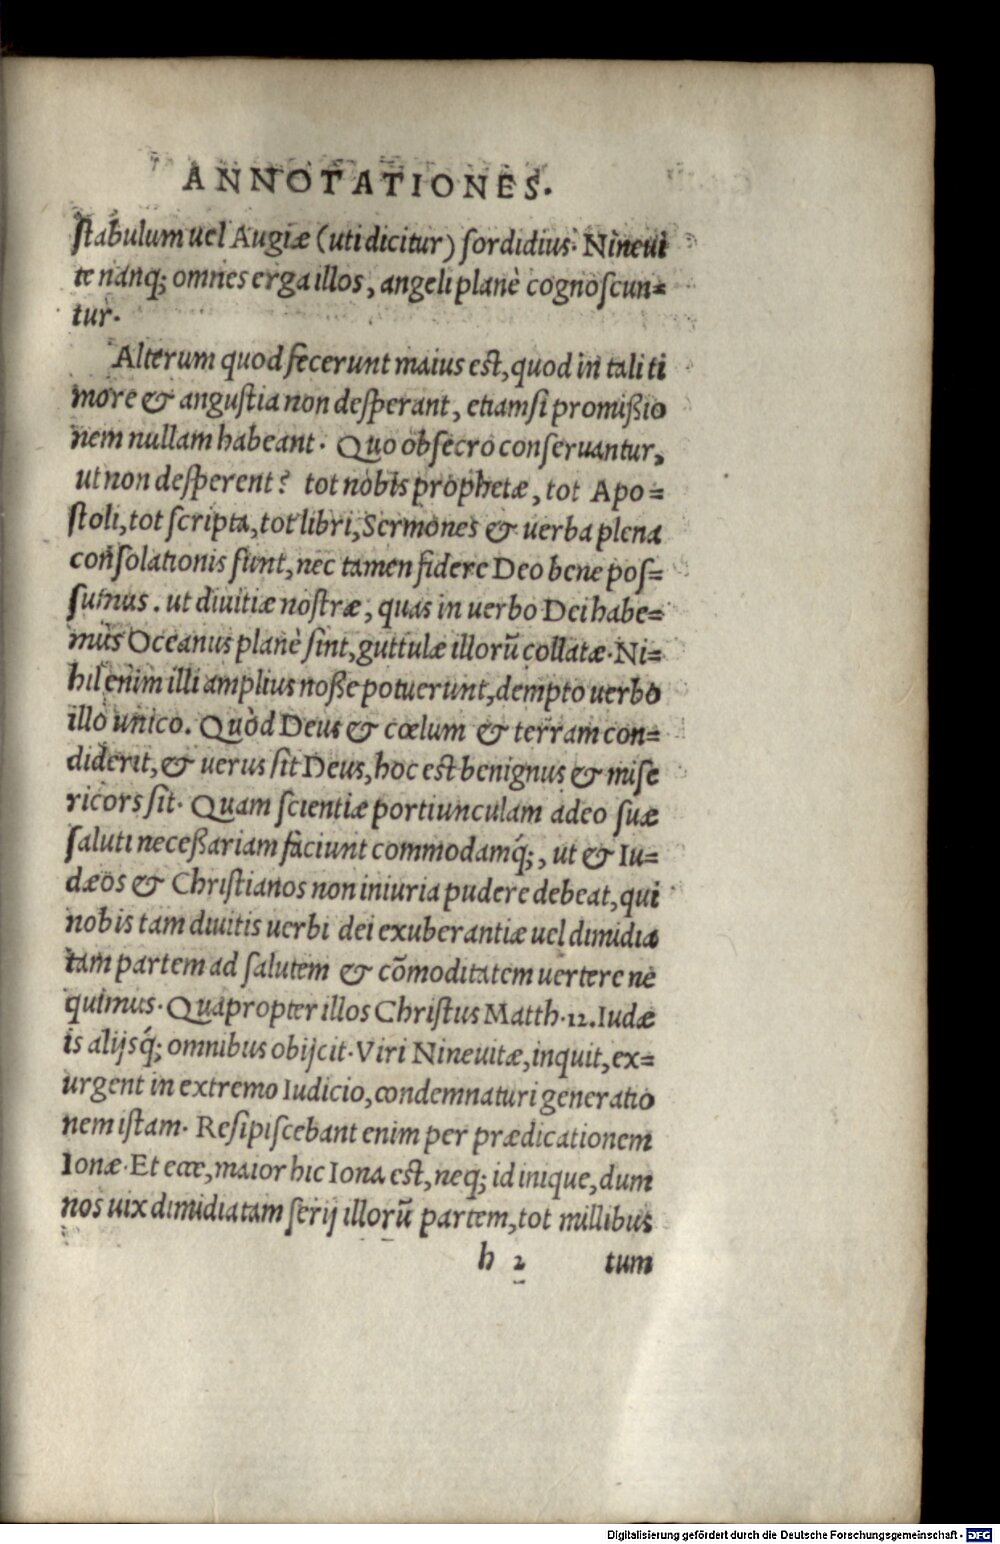 ANNOTATIONES.
ſtabulum uel Augiæ (uti dicitur) ſordidius. Nineui
te nanq; omnes erga illos, angeli planè cognoſcun=
tur.
Alterum quod fecerunt maius eſt, quod in tali ti
more & anguſtia non deſperant, etiamſi promißio
nem nullam habeant. Quo obſecro conſeruantur,
ut non deſperent? tot nobis prophetæ, tot Apo=
ſtoli, tot ſcripta, tot libri, Sermones & uerba plena
conſolationis ſunt, nec tamen fidere Deo bene poſ=
ſumus. ut diuitiæ noſtræ, quas in uerbo Dei habe=
mus Oceanus planè ſint, guttulæ illorū collatæ. Ni=
hil enim illi amplius noße potuerunt, dempto uerbo
illo unico. Quòd Deus & cœlum & terram con=
diderit, & uerus ſit Deus, hoc est benignus & miſe
ricors ſit. Quam ſcientiæ portiunculam adeo ſuæ
ſaluti neceßariam faciunt commodamq́;, ut & Iu=
dæos & Chriſtianos non iniuria pudere debeat, qui
nobis tam diuitis uerbi dei exuberantiæ uel dimidia
tam partem ad ſalutem & cōmoditatem uertere ne
quimus. Quapropter illos Chriſtus Matth. 12. Iudæ
is alijsq́; omnibus obijcit. Viri Nineuitæ, inquit, ex=
urgent in extremo Iudicio, condemnaturi generatio
nem iſtam. Reſipiſcebant enim per prædicationem
Ionæ. Et ecce, maior hic Iona eſt, neq; id inique, dum
nos uix dimidiatam ſerij illorū partem, tot millibus
h 2 tum
Digitalisierung gefördert durch die Deutsche Forschungsgemeinschaft - DFG